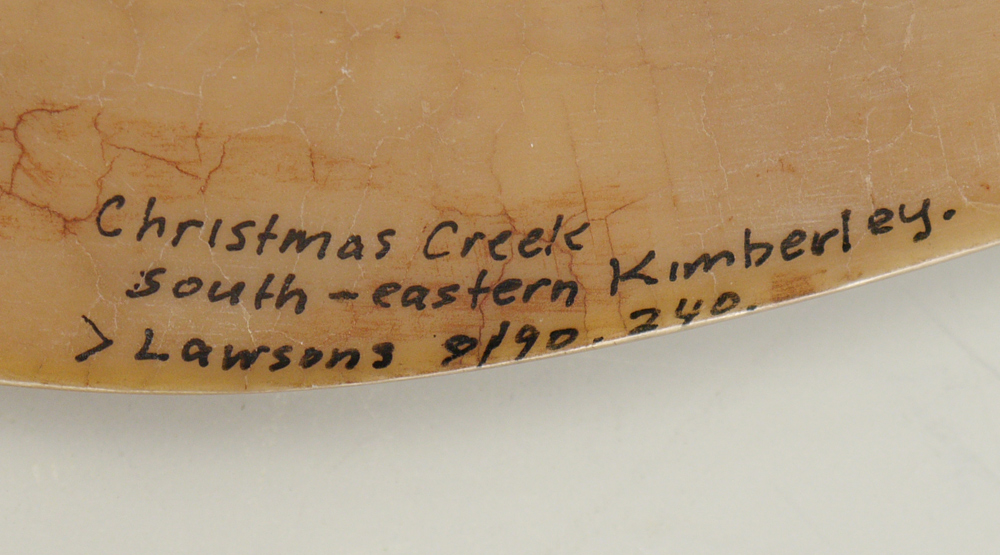 Christmas Creek
South-eastern Kimberley.
> Lawsons 8/90. 240.